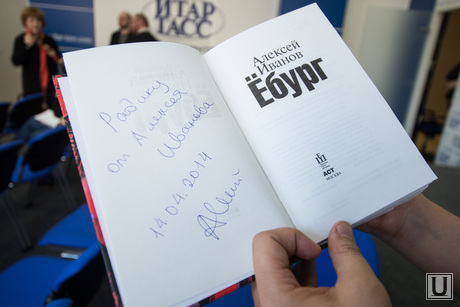 ИТАР
ТАСС
Радику
от Алексея
Иванова
14.04.2014
Алексей
Иванов
Ёбург
АСТ
МОСКВА
U